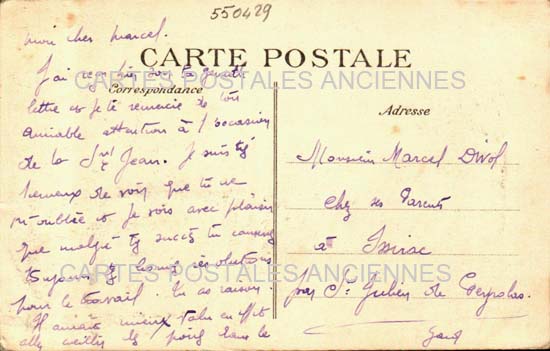 550429
mon cher Marcel.
CARTE POSTALE
CARTES POSTALES ANCIENNES
Correspondance
Adresse
J'ai reçu hier soir ta gentille
lettre et je te remercie de ton
aimable attention à l'occasion
de la St Jean. Je suis
heureux de voir que tu ne
m'oublies et je vois avec plaisir
que malgré tes succès tu conserves
toujours tes bonnes résolutions
pour le travail. Tu as raison.
Il mieux en effet
aller les dans le
Monsieur Marcel Divol
chez ses Parents
à
par St Julien de Peyrolas
Gard
CARTES POSTALES ANCIENNES